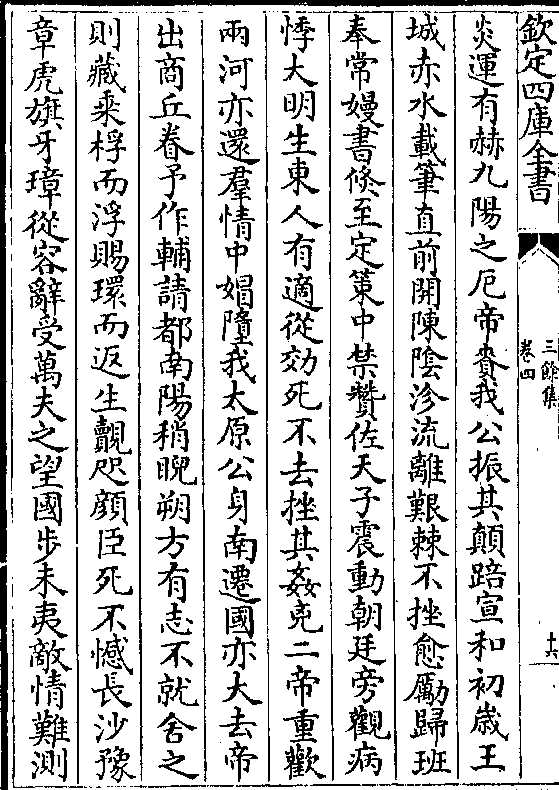 欽定四庫全書
三餘集
卷四
十六
炎運有赫九陽之厄帝賚我公振其顛踣宣和初歳王
城赤水載筆直前開陳陰沴流離艱棘不挫愈勵歸班
奉常嫚書倐至定䇿中禁贊佐天子震動朝廷旁觀病
悸大明生東人有適從効死不去挫其姦兇二帝重歡
兩河亦還羣情中媢墮我太原公身南遷國亦大去帝
出商丘眷予作輔請都南陽稍睨朔方有志不就舍之
則藏乗桴而浮賜環而返生覿咫顔臣死不憾長沙豫
章虎旗牙璋從容辭受萬夫之望國步未夷敵情難測